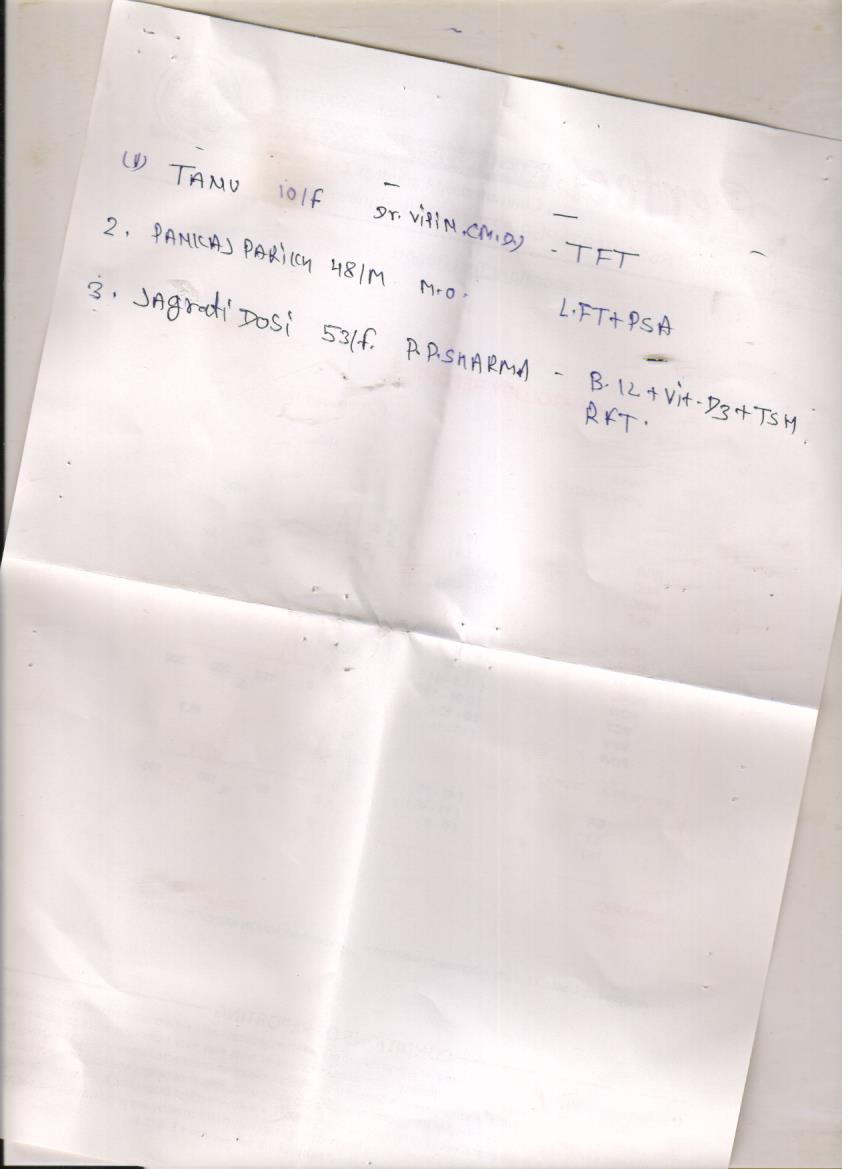 (1) TANU 10/F Dr. VIPIN.(M.D) - TFT
2. PANKAJ PARIKH 48/M M.O. L.FT+PSA
3. JAgrati DOSI 53/f. P.P.SHARMA - B.12 + Vit-D3 + TSH
RFT.